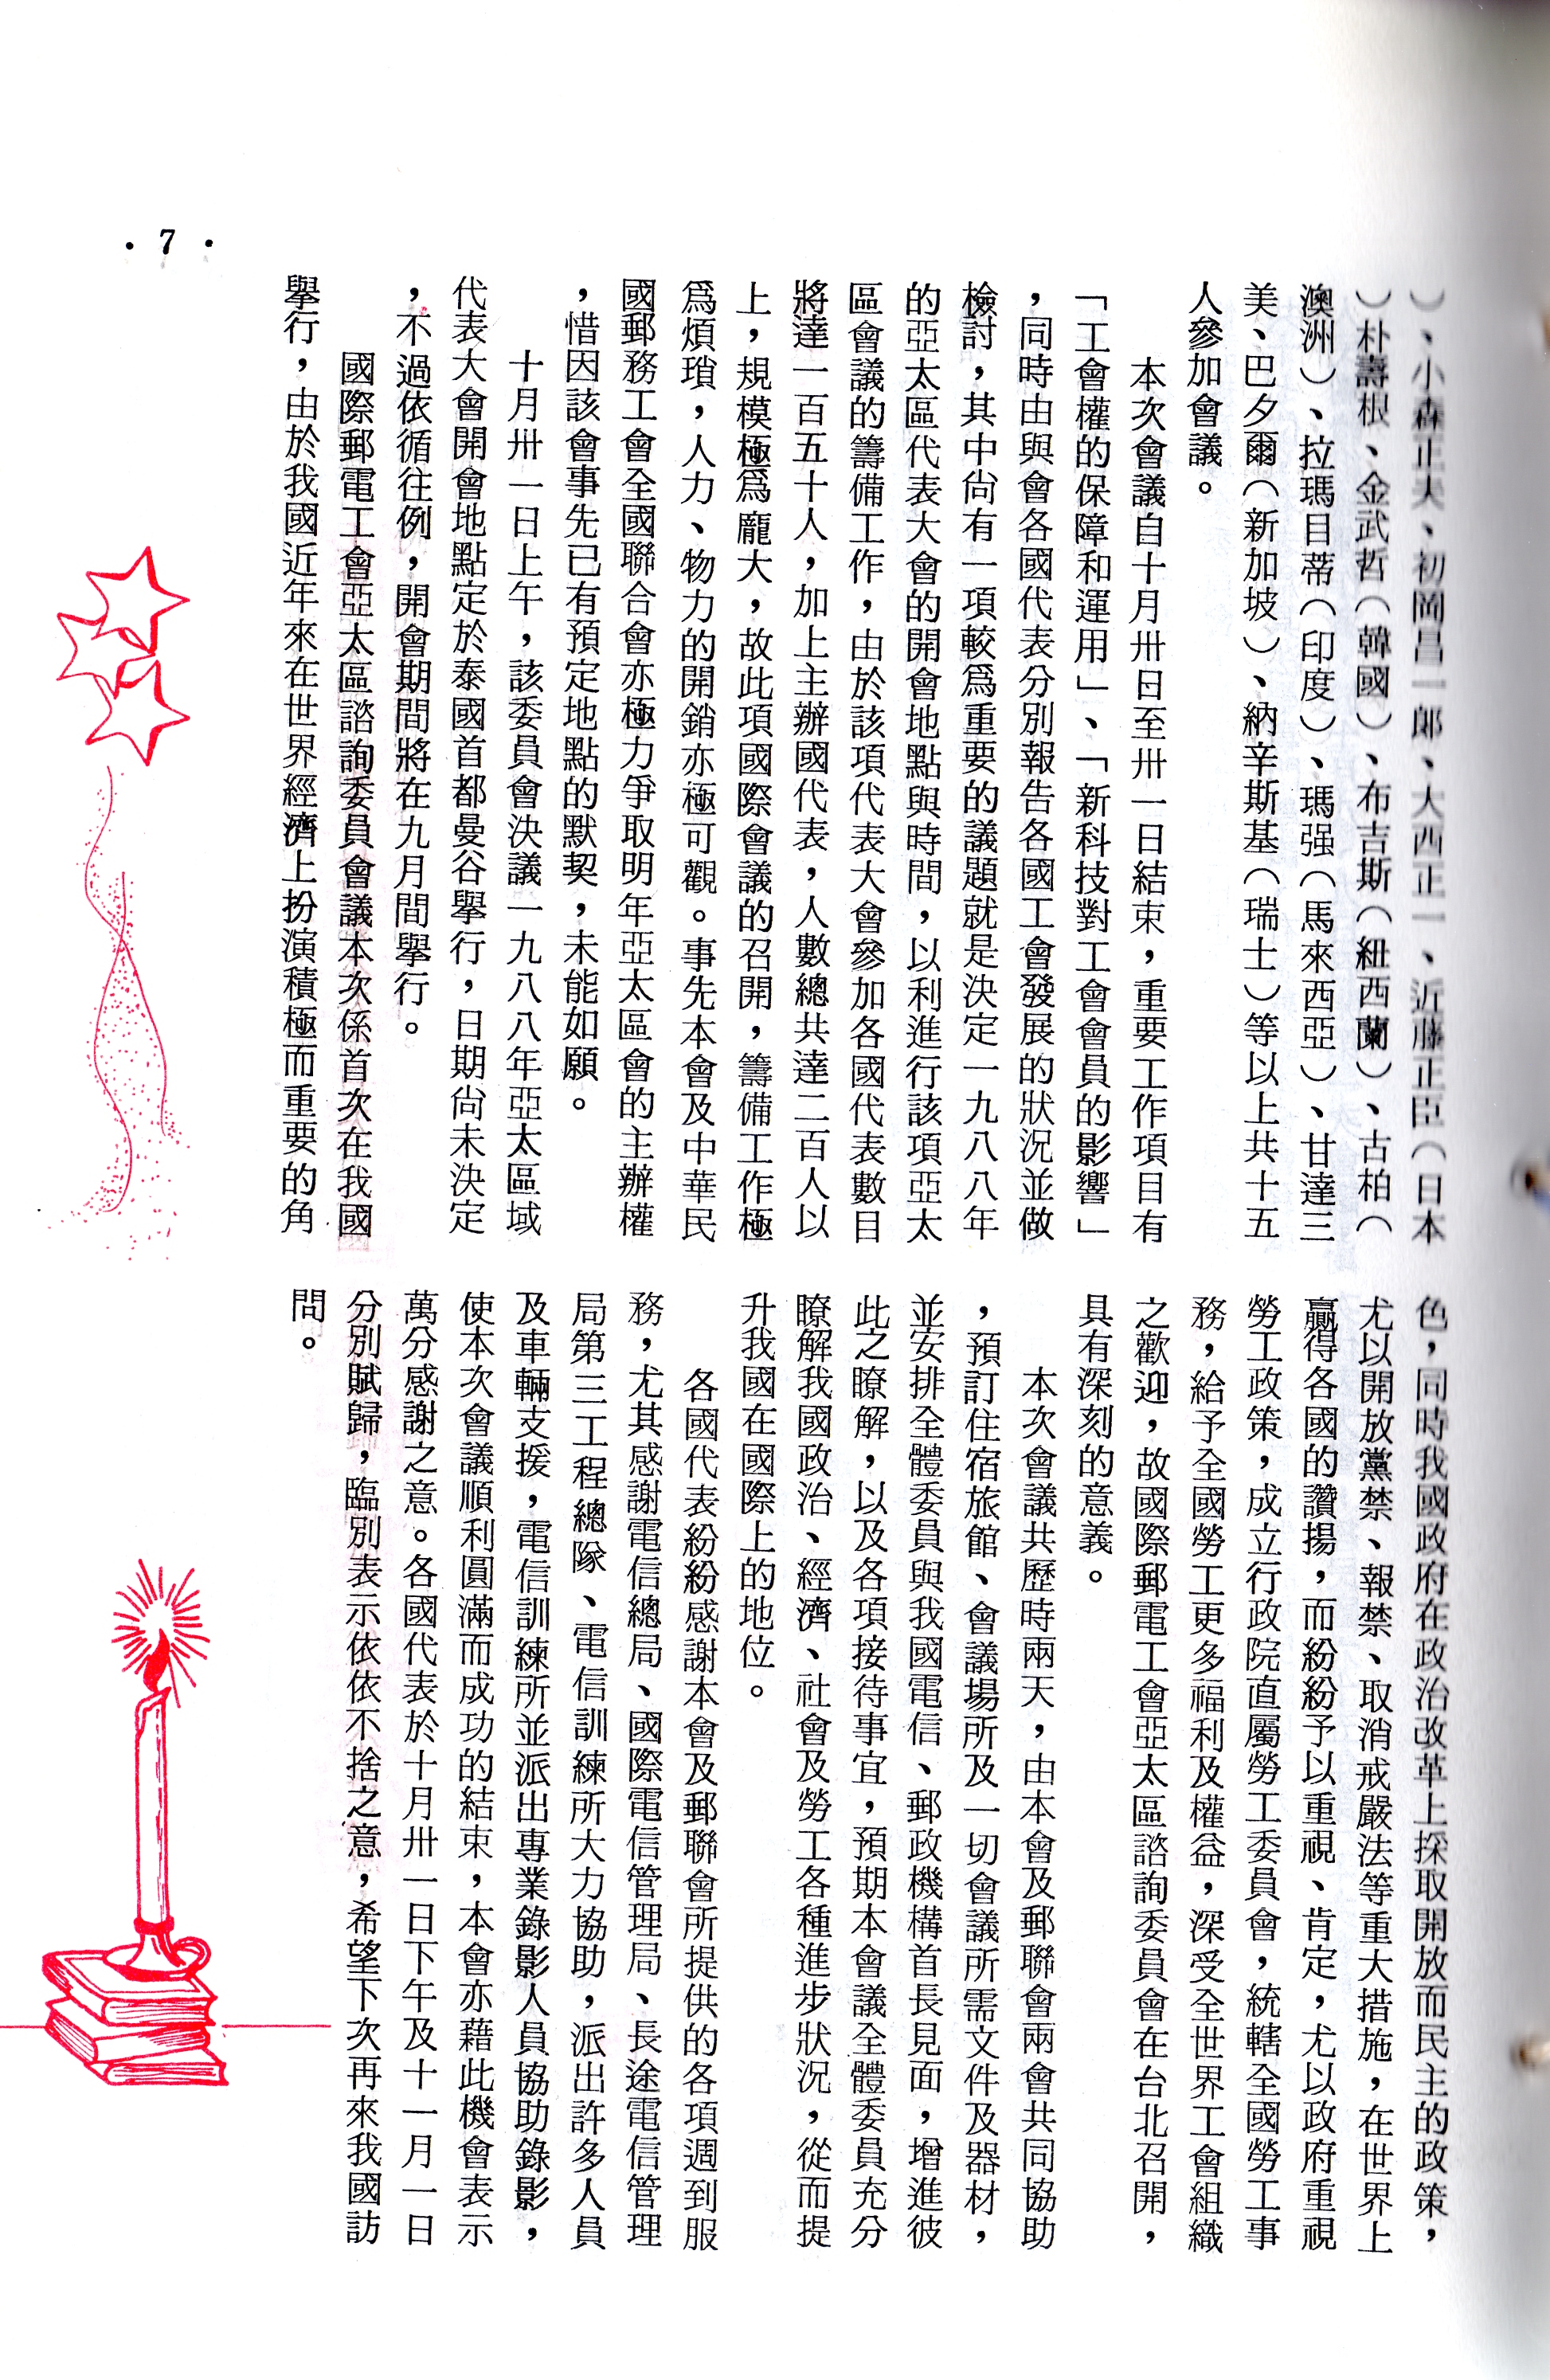 ）、小森正夫、初岡昌一郎、大西正一、近藤正臣（日本
）朴壽根、金武哲（韓國）、布吉斯（紐西蘭）、古柏（
澳洲）、拉瑪目蒂（印度）、瑪强（馬來西亞）、甘達三
美、巴夕爾（新加坡）、納辛斯基（瑞士）等以上共十五
人參加會議。
本次會議自十月卅日至卅一日結束，重要工作項目有
「工會權的保障和運用」、「新科技對工會會員的影響」
，同時由與會各國代表分別報告各國工會發展的狀況並做
檢討，其中尙有一項較爲重要的議題就是決定一九八八年
的亞太區代表大會的開會地點與時間，以利進行該項亞太
區會議的籌備工作，由於該項代表大會參加各國代表數目
將達一百五十人，加上主辦國代表，人數總共達二百人以
上，規模極爲龐大，故此項國際會議的召開，籌備工作極
爲煩瑣，人力、物力的開銷亦極可觀。事先本會及中華民
國郵務工會全國聯合會亦極力爭取明年亞太區會的主辦權
，惜因該會事先已有預定地點的默契，未能如願。
十月卅一日上午，該委員會決議一九八八年亞太區域
代表大會開會地點定於泰國首都曼谷舉行，日期尙未決定
，不過依循往例，開會期間將在九月間舉行。
國際郵電工會亞太區諮詢委員會議本次係首次在我國
舉行，由於我國近年來在世界經濟上扮演積極而重要的角
色，同時我國政府在政治改革上採取開放而民主的政策，
尤以開放黨禁、報禁、取消戒嚴法等重大措施，在世界上
贏得各國的讚揚，而紛紛予以重視、肯定，尤以政府重視
勞工政策，成立行政院直屬勞工委員會，統轄全國勞工事
務，給予全國勞工更多福利及權益，深受全世界工會組織
之歡迎，故國際郵電工會亞太區諮詢委員會在台北召開，
具有深刻的意義。
本次會議共歷時兩天，由本會及郵聯會兩會共同協助
，預訂住宿旅館、會議場所及一切會議所需文件及器材，
並安排全體委員與我國電信、郵政機構首長見面，增進彼
此之瞭解，以及各項接待事宜，預期本會議全體委員充分
瞭解我國政治、經濟、社會及勞工各種進步狀況，從而提
升我國在國際上的地位。
各國代表紛紛感謝本會及郵聯會所提供的各項週到服
務，尤其感謝電信總局、國際電信管理局、長途電信管理
局第三工程總隊、電信訓練所大力協助，派出許多人員
及車輛支援，電信訓練所並派出專業錄影人員協助錄影，
使本次會議順利圓滿而成功的結束，本會亦藉此機會表示
萬分感謝之意。各國代表於十月卅一日下午及十一月一日
分別賦歸，臨別表示依依不捨之意，希望下次再來我國訪
問。
・7・